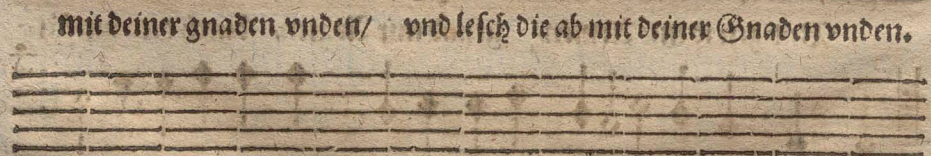 mit deiner gnaden vnden/ vnd lesch die ab mit deiner Gnaden vnden.